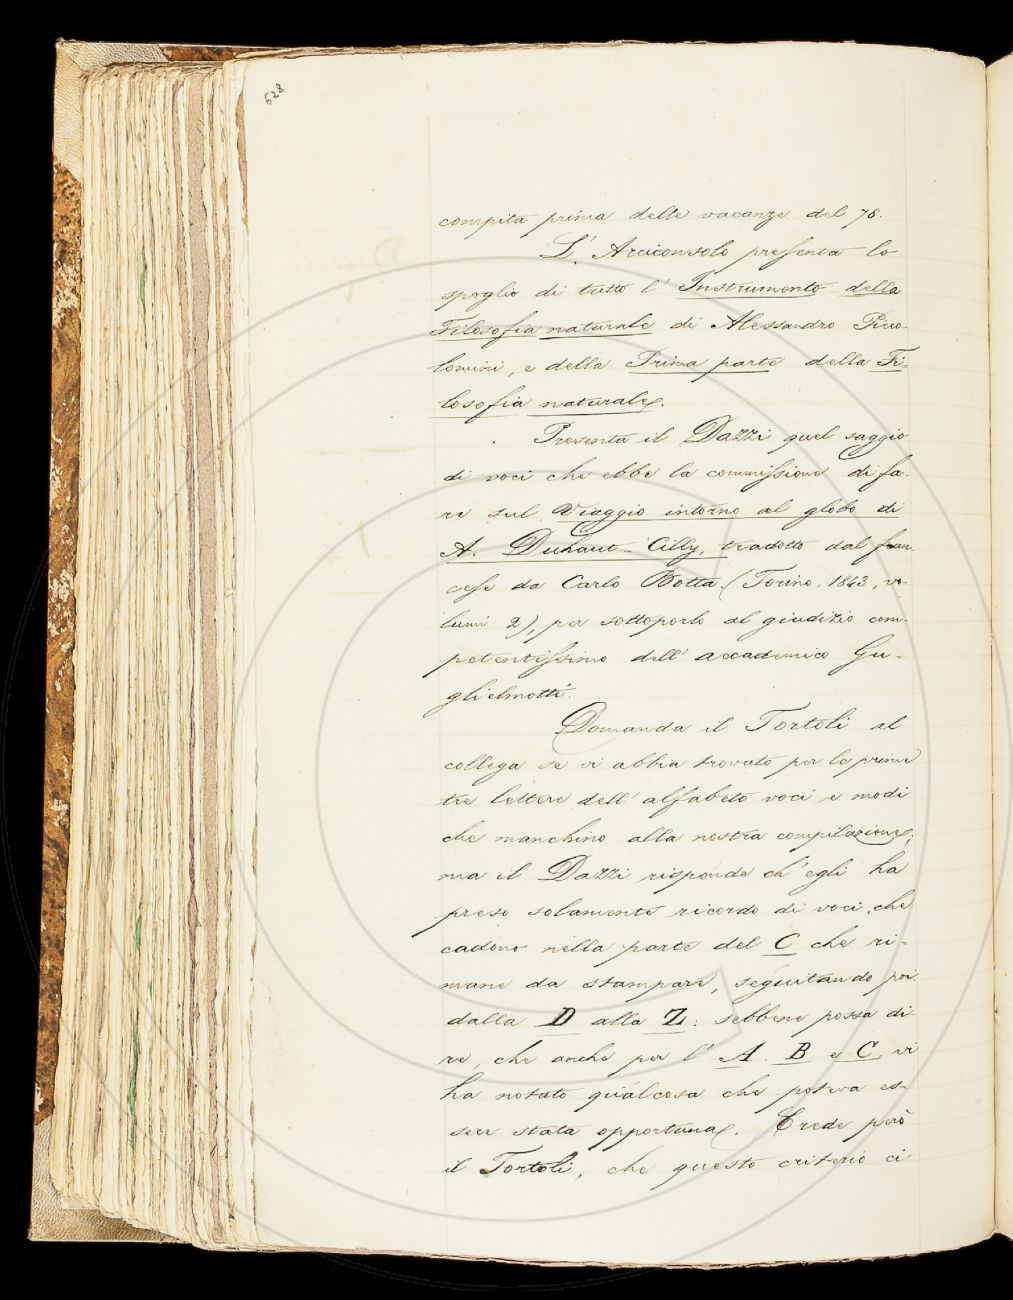 628
compita prima delle vacanze del 78.
L'Arciconsolo presenta lo
spoglio di tutto l'Instrumento della
Filosofia naturale di Alessandro Picco-
lomini, e della Prima parte della Fi-
losofia naturale.
Presenta il Dazzi quel saggio
di voci che ebbe la commissione di fa-
re sul Viaggio intorno al globo di
A. Duhaut-Cilly, tradotto dal fran-
cese da Carlo Botta (Torino, 1843, vo-
lumi 2), per sottoporlo al giudizio com-
petentissimo dell'accademico Gu-
glielmotti.
Domanda il Tortoli al
collega se vi abbia trovato per le prime
tre lettere dell'alfabeto voci e modi
che manchino alla nostra compilazione;
ma il Dazzi risponde ch'egli ha
preso solamente ricordo di voci che
cadono nella parte del C che ri-
mane da stampare, seguitando poi
dalla D alla Z: sebbene possa di-
re, che anche per l'A. B e C, vi
ha notato qualcosa che poteva es-
sere stata opportuna. Crede però
il Tortoli, che questo criterio ci